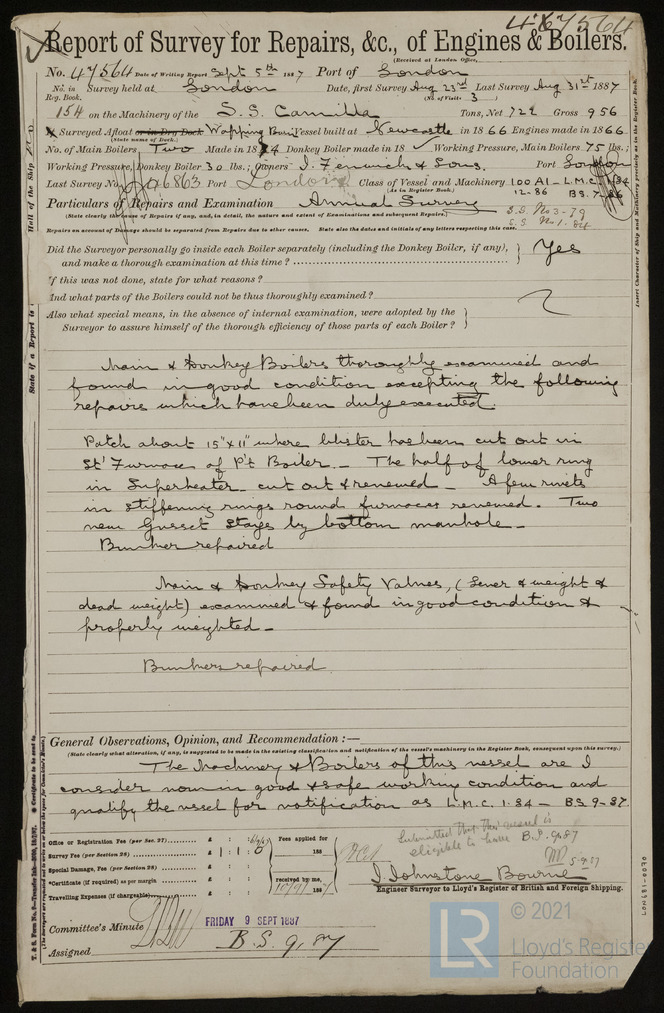 47564
Report of Survey for Repairs, &c., of Engines & Boilers.
(Received at London Office,
No. 47564 Date of Writing Report Sept 5th 1887 Port of London
No. in Reg. Book. Survey held at London Date, first Survey Aug 23rd Last Survey Aug 31st 1887
(No. of Visits 3)
154 on the Machinery of the S.S. Camilla Tons, Net 722 Gross 956
Surveyed Afloat or in Dry Dock Wapping Basin Vessel built at Newcastle in 1866 Engines made in 1866
(State name of Dock.)
No. of Main Boilers Two Made in 1874 Donkey Boiler made in 18 Working Pressure, Main Boilers 75 lbs.;
Working Pressure, Donkey Boiler 30 lbs.; Owners J. Fenwick & Sons. Port London
Last Survey No. 46863 Port London Class of Vessel and Machinery 100 A1 - L.M.C. 1.84
(as in Register Book.) 12-86 B.S. 7-86
Particulars of Repairs and Examination Annual Survey
(State clearly the cause of Repairs if any, and, in detail, the nature and extent of Examinations and subsequent Repairs.)
S.S. No 3-79
S.S. No 1-84
Repairs on account of Damage should be separated from Repairs due to other causes. State also the dates and initials of any letters respecting this case.
Did the Surveyor personally go inside each Boiler separately (including the Donkey Boiler, if any),
and make a thorough examination at this time? Yes
If this was not done, state for what reasons?
And what parts of the Boilers could not be thus thoroughly examined?
Also what special means, in the absence of internal examination, were adopted by the
Surveyor to assure himself of the thorough efficiency of those parts of each Boiler?
Main & Donkey Boilers thoroughly examined and
found in good condition excepting the following
repairs which have been duly executed.
Patch about 15" x 11" where blister has been cut out in
St'd Furnace of P't Boiler. - The half of lower ring
in Superheater cut out & renewed - A few rivets
in stiffening rings round furnaces renewed. Two
new Gusset Stays by bottom manhole -
Bunker repaired
Main & Donkey Safety Valves, (Lever & weight &
dead weight) examined & found in good condition &
properly weighted -
Bunkers repaired.
General Observations, Opinion, and Recommendation :—
(State clearly what alteration, if any, is suggested to be made in the existing classification and notification of the vessel's machinery in the Register Book, consequent upon this survey.)
The Machinery & Boilers of this vessel are I
consider now in good & safe working condition and
qualify the vessel for notification as L.M.C. 1.84 - B.S. 9-87.
Office or Registration Fee (per Sec. 27)
Survey Fee (per Section 28) £ 1 : 1 : 0
Special Damage Fee (per Section 28)
*Certificate (if required) as per margin
Travelling Expenses (if chargeable)
Fees applied for
188
received by me,
10/9/1887
Submitted that this vessel is
eligible to have B.S. 9.87
5-9-87
J. Johnstone Bourne
Engineer Surveyor to Lloyd's Register of British and Foreign Shipping.
Committee's Minute FRIDAY 9 SEPT 1887
Assigned B.S. 9,87
© 2021
Lloyd's Register
Foundation
LR